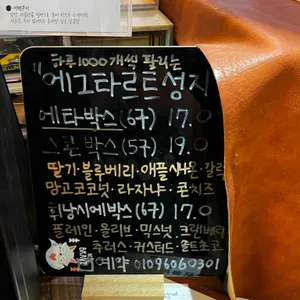 하루1000개씩 팔리는
"에그타르트 성지
에타박스(67) 17.0
스콘박스(57) 19.0
딸기·블루베리·애플시나몬·갈릭
망고코코넛·라자냐·콘치즈
휘낭시에박스(67) 17.0
플레인·올리브·믹스넛·크랜베리
츄러스·커스터드·솔트초코
예약 01096060301